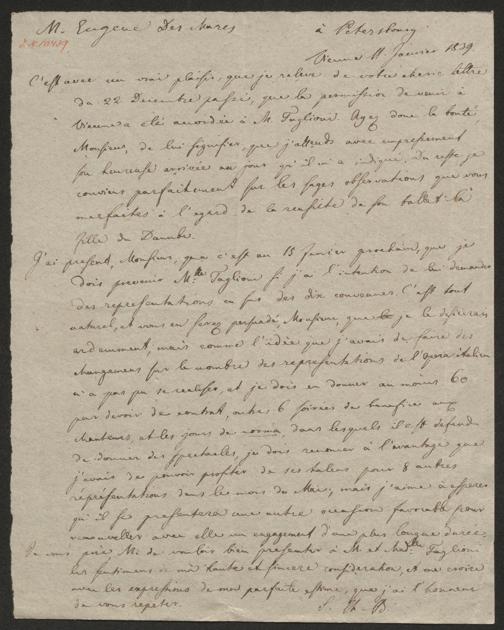 M. Eugene Des Mares
à Petersbourg
Vienne 11 Janvier 1839
C'est avec un vrai plaisir, que je releve de votre chere lettre
du 22 Decembre passé, que la permission de venir à
Vienne a été accordée à M. Taglioni. Ayez donc la bonté,
Monsieur, de lui signifier, que j'attends avec empressement
son heureuse arrivée au jour qu'il m'a indiqué. Du reste je
conviens parfaitement sur les sages observations que vous
me faites à l'egard de la reussite de son ballet: la
fille du Danube.
J'ai present, Monsieur, que c'est au 15 Janvier prochain, que je
dois prevenir Mlle Taglioni si j'ai l'intention de lui demander
des representations en sus des dix convenues. C'est tout
naturel, et vous en serez persuadé, Monsieur, que je le desirerais
ardemment, mais comme l'idée que j'avais de faire des
changemens sur le nombre des representations de l'opera italien
n'a pas pu se realiser, et je dois en donner au moins 60
par devoir de contrat, outre 6 soirées de benefice aux
Chanteurs, et les jours de norma, dans lesquels il est defendu
de donner des spectacles, je dois renoncer à l'avantage que
j'avais de pouvoir profiter de ses talens pour 8 autres
représentations dans le mois du Mai, mais j'aime à esperer
qu'il se presentera une autre occasion favorable pour
renouveller avec elle un engagement d'une plus longue durée.
Je vous prie Mr. de vouloir bien presenter à M. et Madlle Taglioni
les sentimens de ma haute et sincere consideration, et me croire
avec les expressions de mon parfaite estime, que j'ai l'honneur
de vous repeter.